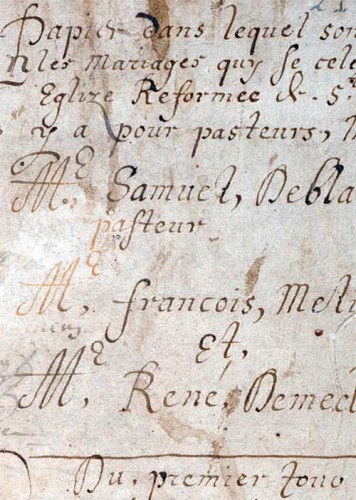 Papier dans lequel son
les Mariages quy se cele
Eglize Reformee de S.te
y a pour pasteurs,
Me, Samuel, Debla
pasteur
Me, francois, Mesti
Et,
Me, René, Demed
Du, premier Jour